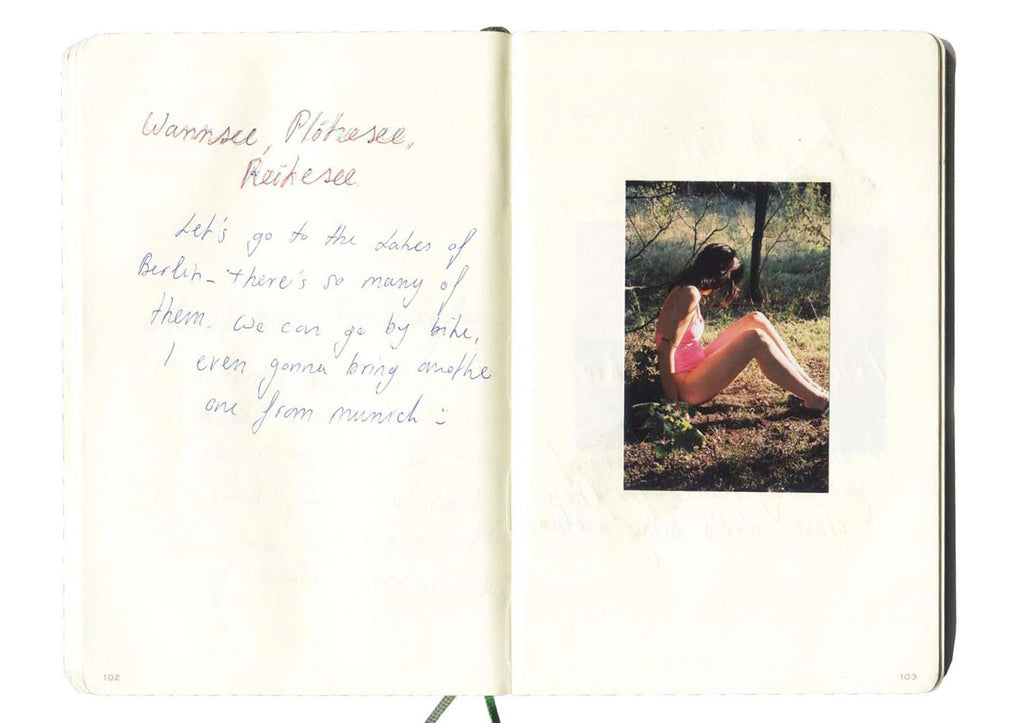 Wannsee, Plötzesee,
see.
Let's go to the Lakes of
Berlin - there's so many of
them. We can go by bike,
I even gonna bring anothe
one from munich :
102
103